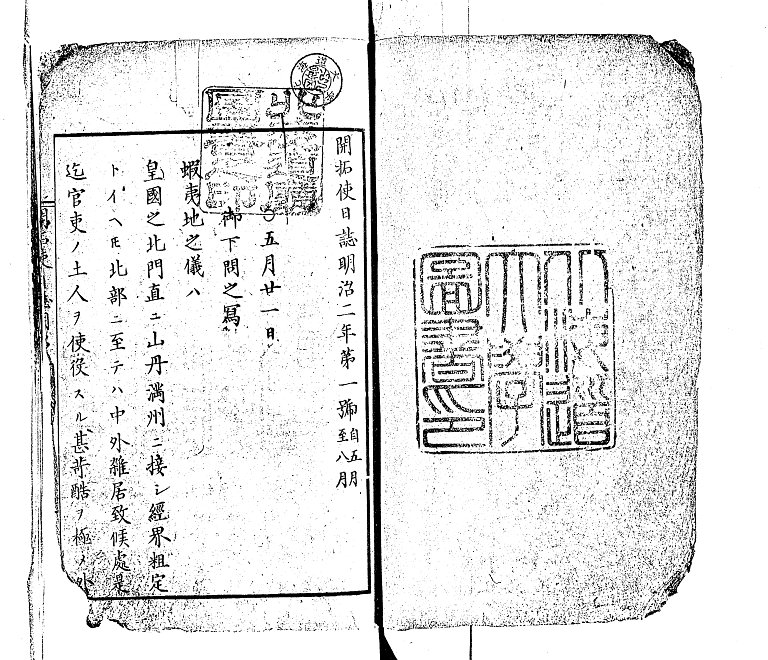 開拓使日誌明治二年第一號自五月至八月
〇五月廿一日
御下問之寫
蝦夷地之儀ハ
皇國之北門直ニ山丹満州ニ接シ經界粗定
トイヘ𪜈北部ニ至テハ中外雜居致候處是
迄官吏ノ土人ヲ使役スル甚苛酷ヲ極メ外
北海道
大學
圖書印